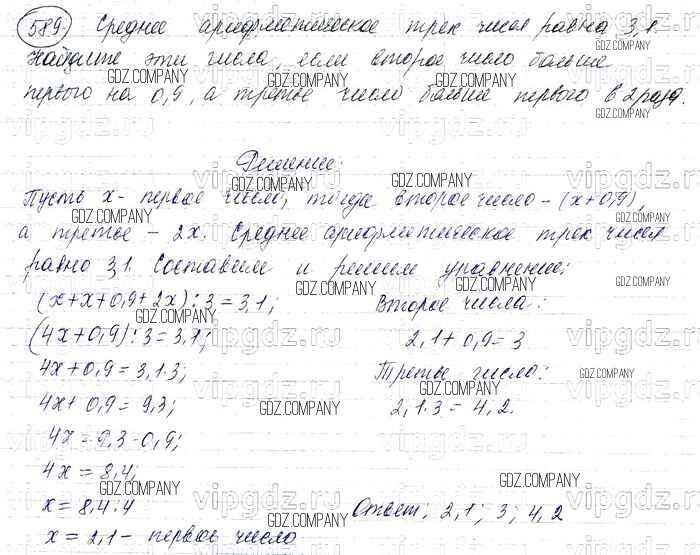 589. Среднее арифметическое трех чисел равна 3,1.
Найдите эти числа, если второе число больше
первого на 0,9, а третье число больше первого в 2 раза.
Решение:
Пусть x - первое число, тогда второе число - (x+0,9),
а третье - 2x. Среднее арифметическое трех чисел
равно 3,1. Составим и решим уравнение:
(x+x+0,9+2x):3=3,1;
(4x+0,9):3=3,1;
4x+0,9=3,1·3;
4x+0,9=9,3;
4x=9,3-0,9;
4x=8,4;
x=8,4:4
x=2,1- первое число
Второе числа:
2,1+0,9=3
Третье число:
2,1·3=4,2.
Ответ; 2,1; 3; 4,2
GDZ.COMPANY
vipgdz.ru